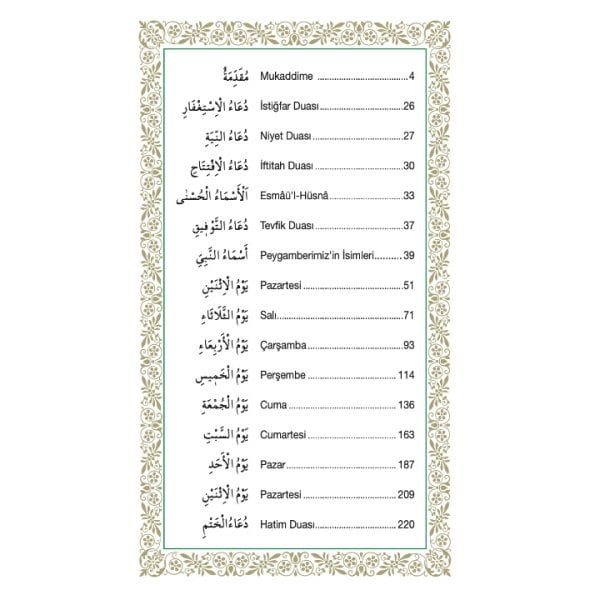 مُقَدِّمَةٌ Mukaddime ......................................4
دُعَاءُ الْاِسْتِغْفَارِ İstiğfar Duası..................................26
دُعَاءُ النِّيَّةِ Niyet Duası.....................................27
دُعَاءُ الْاِفْتِتَاحِ İftitah Duası....................................30
اَلْأَسْمَاءُ الْحُسْنٰى Esmâü'l-Hüsnâ...............................33
دُعَاءُ التَّوْفِيقِ Tevfik Duası....................................37
أَسْمَاءُ النَّبِيِّ Peygamberimiz'in İsimleri..........39
يَوْمُ الْاِثْنَيْنِ Pazartesi.........................................51
يَوْمُ الثَّلَاثَاءِ Salı.................................................71
يَوْمُ الْأَرْبِعَاءِ Çarşamba.......................................93
يَوْمُ الْخَمِيسِ Perşembe .....................................114
يَوْمُ الْجُمْعَةِ Cuma ...........................................136
يَوْمُ السَّبْتِ Cumartesi .....................................163
يَوْمُ الْأَحَدِ Pazar............................................187
يَوْمُ الْاِثْنَيْنِ Pazartesi ......................................209
دُعَاءُ الْخَتْمِ Hatim Duası..................................220